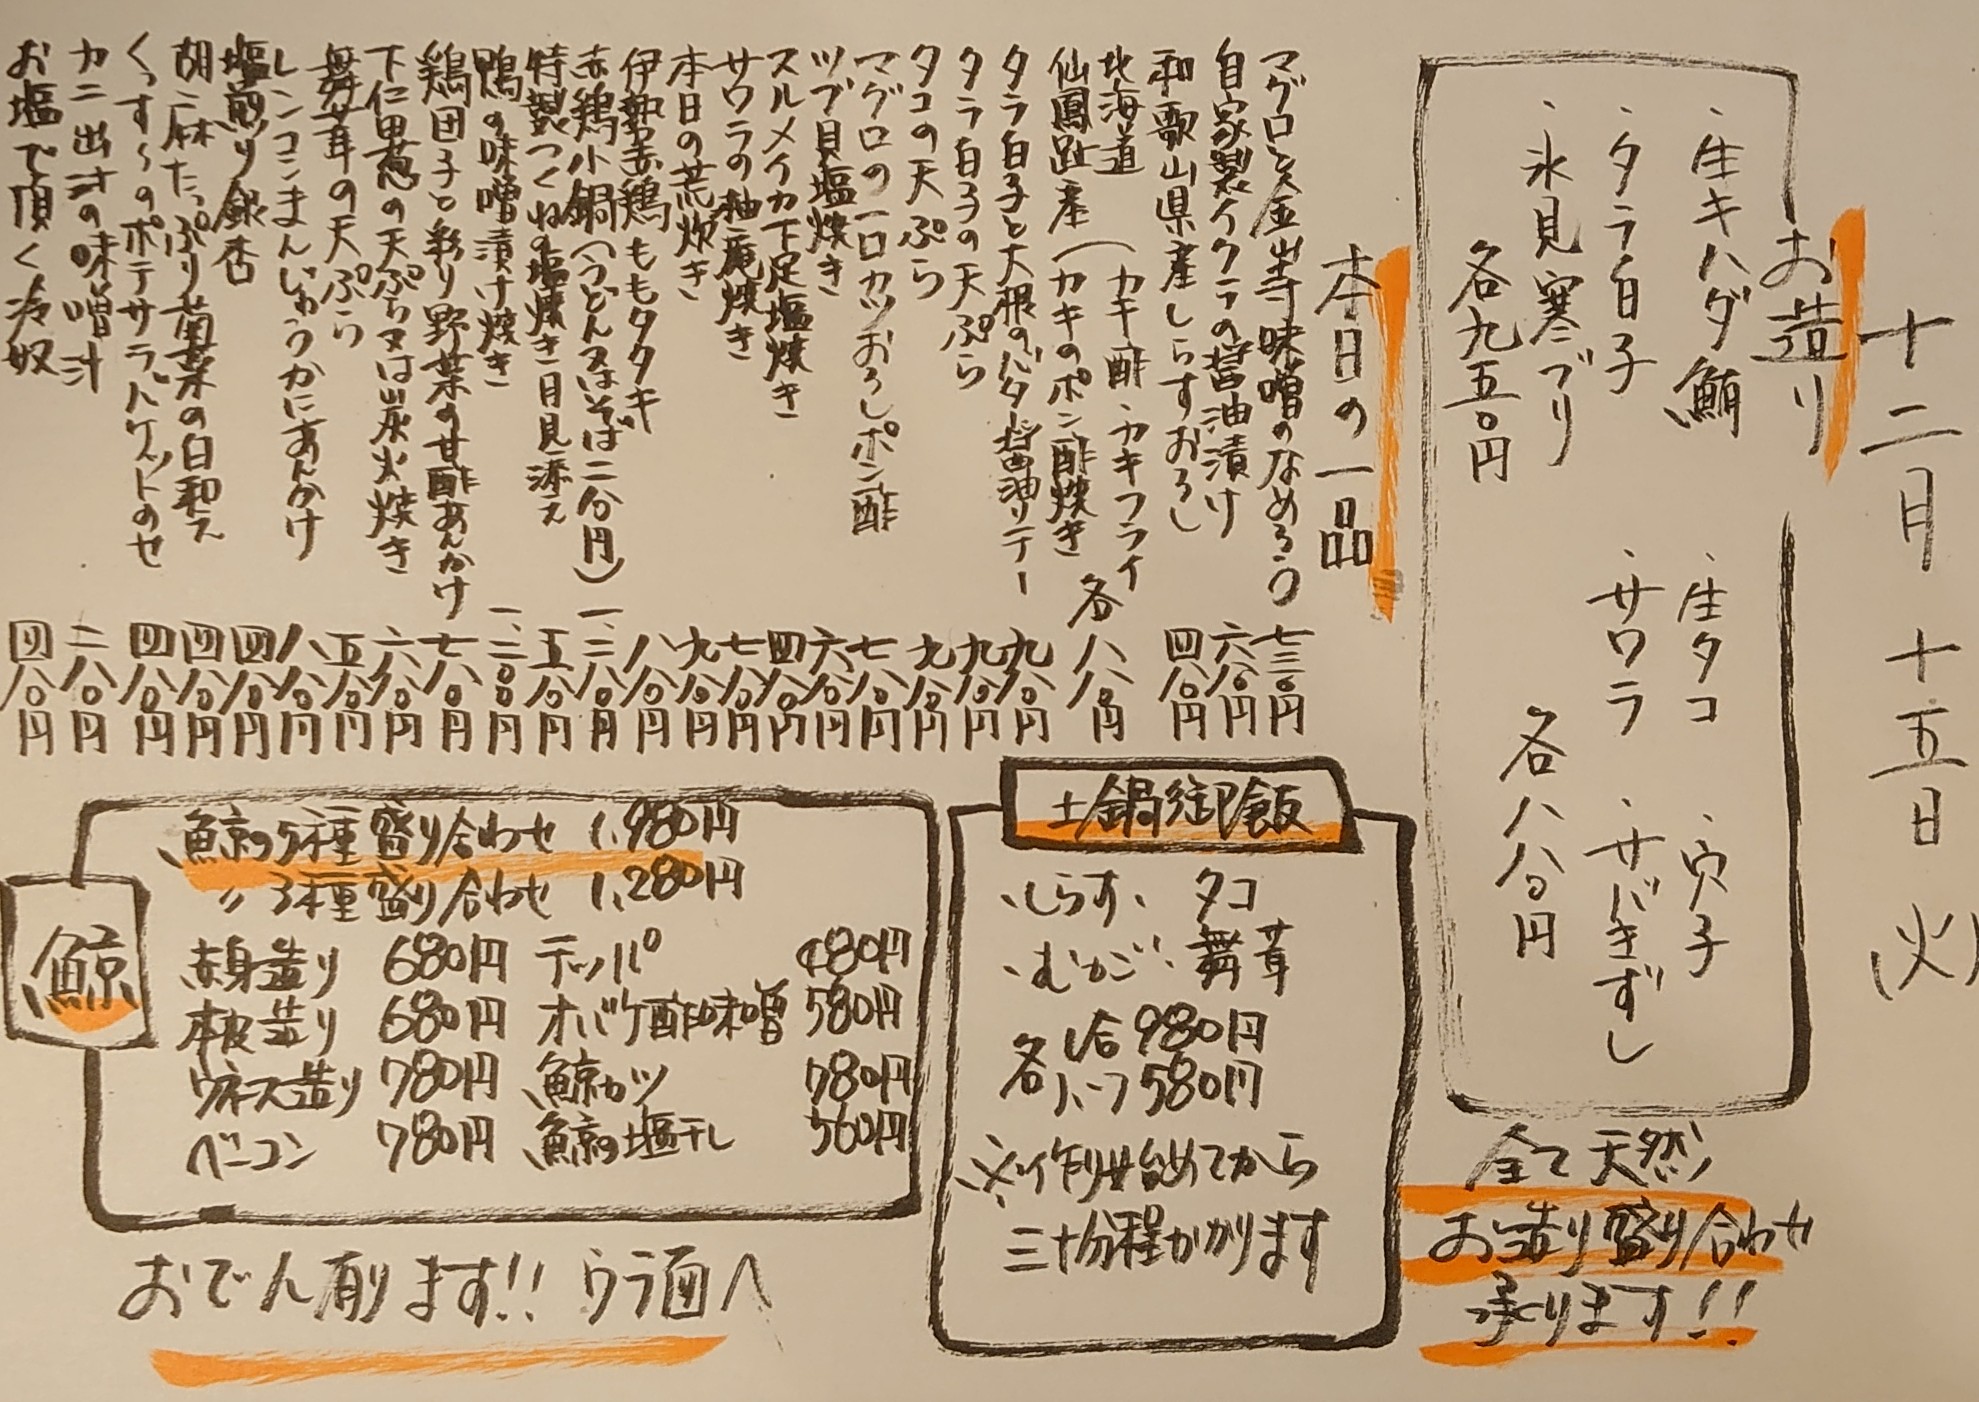 十二月十五日(火)
お造り
・生キハダ鮪
・タラ白子
・氷見寒ブリ
各九五〇円
・生タコ
・サワラ
・穴子
・サバきずし
各八八〇円
全て天然
お造り盛り合わせ
承ります!!
本日の一品
マグロと金山寺味噌のなめろう 七三〇円
自家製イクラの醤油漬け 六八〇円
和歌山県産しらすおろし 四八〇円
北海道 仙鳳趾産(カキ酢・カキフライ
カキのポン酢焼き 各八八〇円
タラ白子と大根のバター醤油ソテー 九八〇円
タラ白子の天ぷら 九八〇円
タコの天ぷら 九八〇円
マグロの一口カツおろしポン酢 七八〇円
ツブ貝塩焼き 六八〇円
スルメイカ下足塩焼き 四八〇円
サワラの柚庵焼き 七八〇円
本日の荒炊き 九八〇円
伊勢赤鶏ももタタキ 八八〇円
赤鶏小鍋(うどん又はそば二八〇円) 一、二八〇円
特製つくねの塩焼き月見添え 五八〇円
鴨の味噌漬け焼き 一、二〇〇円
鶏団子と彩り野菜の甘酢あんかけ 七八〇円
下仁田葱の天ぷら又は炭火焼き 六八〇円
舞茸の天ぷら 五八〇円
レンコンまんじゅうかにあんかけ 八八〇円
塩煎り銀杏 四八〇円
胡麻たっぷり菊菜の白和え 四八〇円
くっすーのポテサラバケットのせ 四八〇円
カニ出汁の味噌汁 二八〇円
お塩で頂く冷奴 四八〇円
土鍋御飯
・しらす・タコ
・むかご・舞茸
各1合980円
各ハーフ580円
※作り始めてから
三十分程かかります
鯨
鯨の5種盛り合わせ 1,980円
〃3種盛り合わせ 1,280円
赤身造り 680円
本皮造り 680円
ウネス造り 780円
ベーコン 780円
テッパ 480円
オバケ酢味噌 580円
鯨カツ 780円
鯨の塩干し 560円
おでん有ります!!ウラ面へ